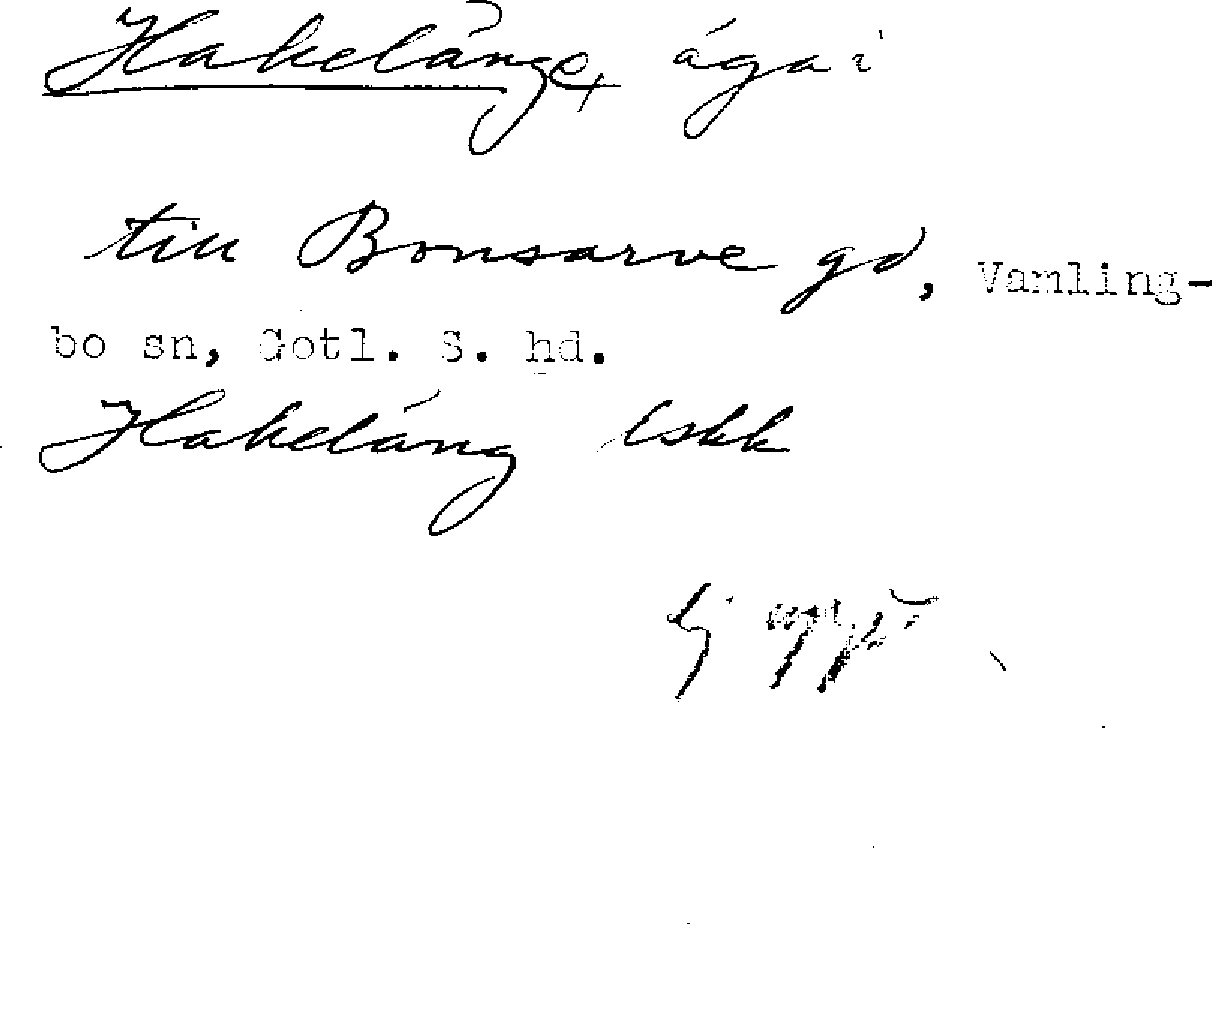 Hakelänge, ägai
till Bonsarve gd, Vamling-
bo sn, Gotl. S. hd.
Hakeläng lskk
Ej uppt